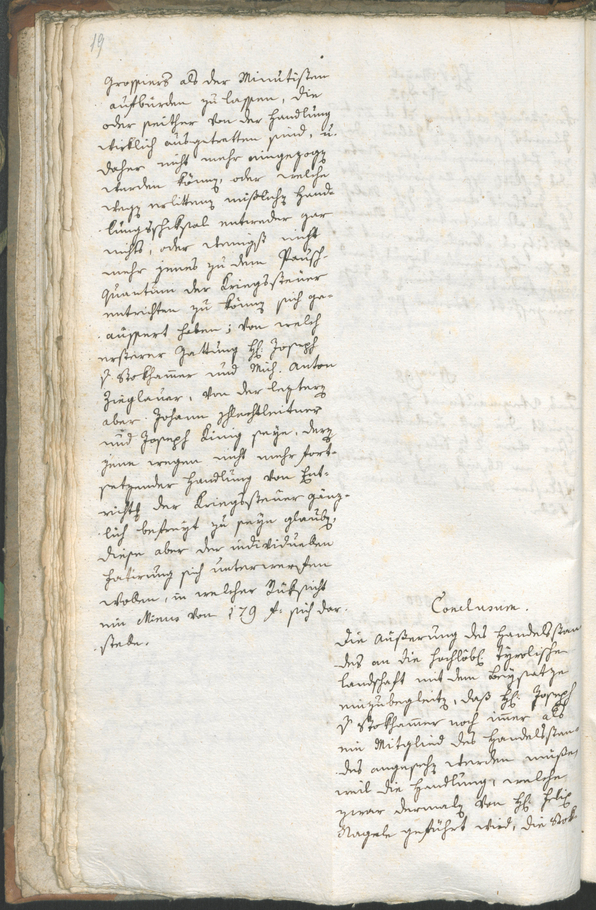 19
Grossiers als der Minutisten
aufbürden zu lassen, die
oder seither von der Handlung
wirklich ausgetretten sind, u.
daher nicht mehr eingezogen
werden können, oder welche
wegen erlittenen mißlichen Hand-
lungsschiksal entweder gar
nichts, oder wenigst nicht
mehr jenes zu dem Pausch-
quantum der Kriegssteuer
entrichten zu können sich ge-
äussert haben; von welch
ersterer Gattung H: Joseph
v Stokhamer und Mich. Anton
Zieglauer, von der leztern
aber Johann Schlechtleitner
und Joseph König seye, deren
jene wegen nicht mehr fort-
setzender Handlung von Ent-
richtung der Kriegssteuer gänz-
lich befreyt zu seyn glauben,
diese aber der individuellen
Fatirung sich unterwerfen
wollen, in welcher Rüksicht
ein Minus von 179 f. sich dar-
stelle.
Conclusum.
Die Äußerung des Handelsstan
des an die hochlöbl. Tyrolische
Landschaft mit dem Beysatze
einzubegleiten, daß H: Joseph
v Stokhamer noch imer als
ein Mitglied des Handelsstan-
des angesehen werden müße,
weil die Handlung, welche
zwar dermalen von H: Felix
Nagele geführt wird, die Stok